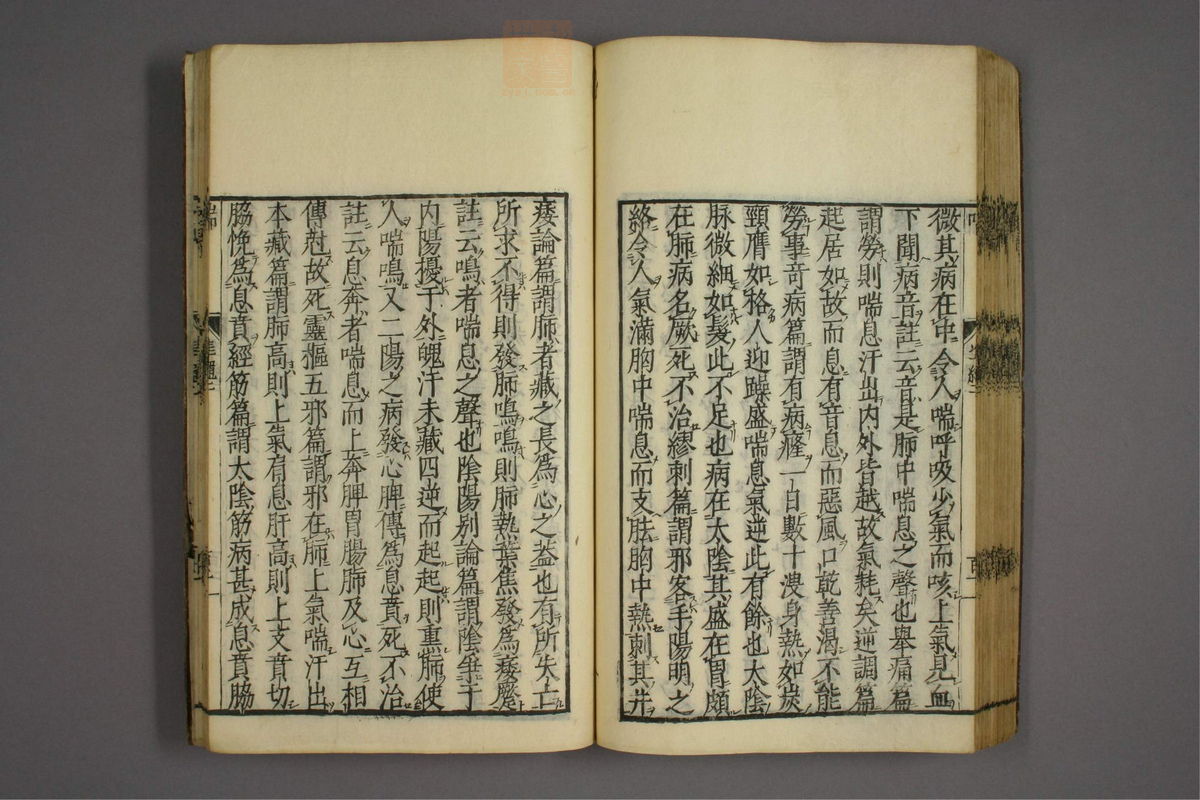 微其病在中令人喘呼吸少氣而咳上氣見血
下聞病音註云音是肺中喘息之聲也舉痛篇
謂勞則喘息汗出内外皆越故氣耗矣逆調篇
起居如故而息有音息而惡風口乾善渴不能
勞事奇病篇謂有病癃一日數十溲身熱如炭
頸膺如格人迎躁盛喘息氣逆此有餘也太陰
脉微細如髮此不足也病在太陰其盛在胃頗
在肺病名厥死不治繆刺篇謂邪客手陽明之
絡令人氣滿胸中喘息而支胠胸中熱刺其井
痿論篇謂肺者藏之長爲心之蓋也有所失亡
所求不得則發肺鳴鳴則肺熱葉焦發爲痿躄
註云鳴者喘息之聲也陰陽别論篇謂陰爭于
内陽擾于外魄汗未藏四逆而起起則熏肺使
人喘鳴又二陽之病發心脾傳爲息賁死不治
註云息奔者喘息而上奔脾胃腸肺及心互相
傳尅故死靈樞五邪篇謂邪在肺上氣喘汗出
本藏篇謂肺高則上氣肩息肝高則上支賁切
脇悗爲息賁經筋篇謂太陰筋病甚成息賁脇